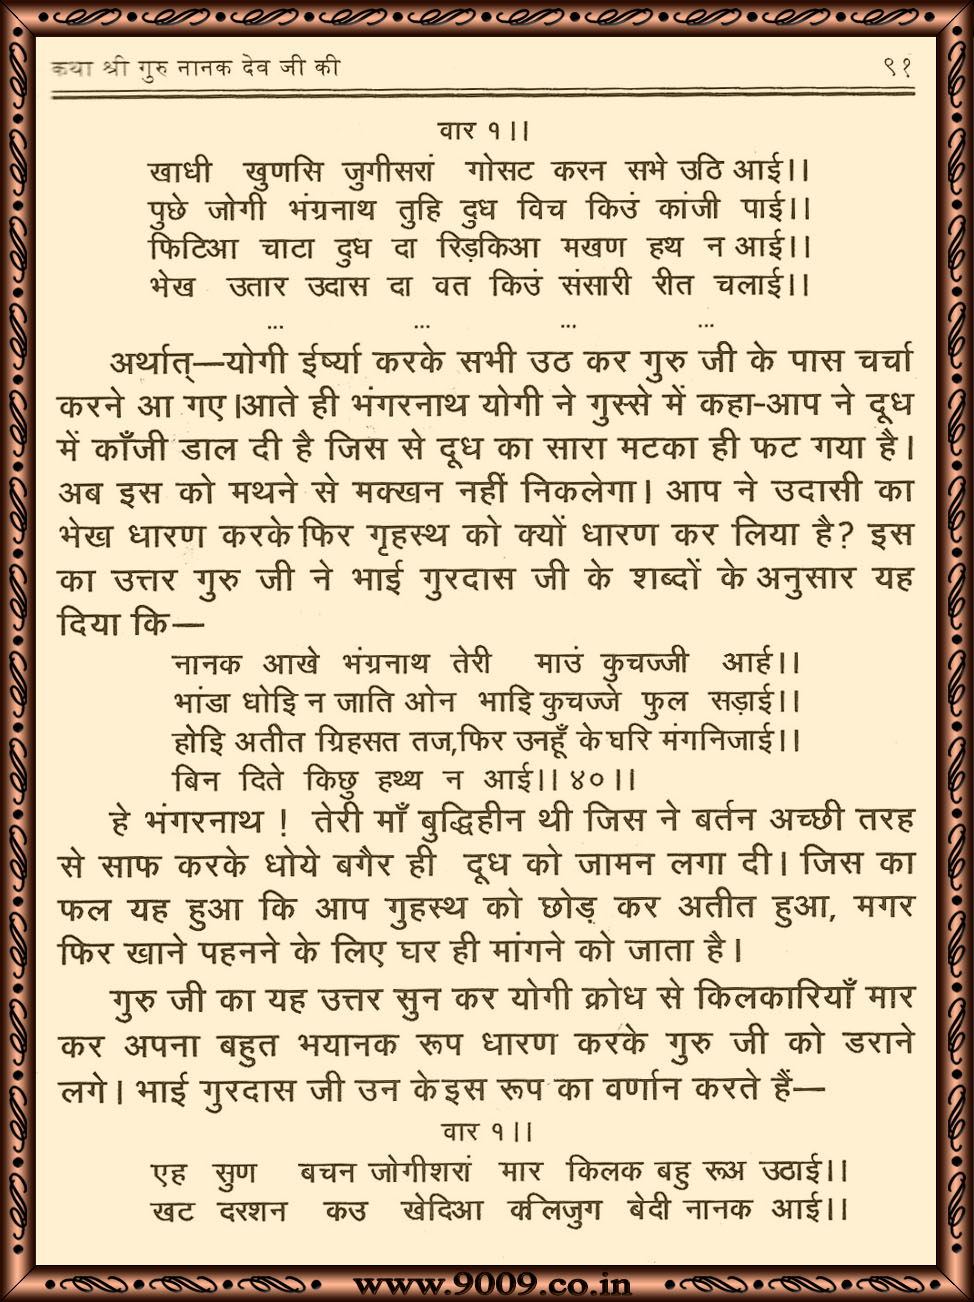 कथा श्री गुरु नानक देव जी की ९१
वार १।।
खाधी खुणसि जुगीसरां गोसट करन सभे उठि आई।।
पुछे जोगी भंग्रनाथ तुहि दुध विच किउं कांजी पाई।।
फिटिआ चाटा दुध दा रिड़किआ मखण हथ न आई।।
भेख उतार उदास दा वत किउं संसारी रीत चलाई।।
... ... ... ...
अर्थात्—योगी ईर्ष्या करके सभी उठ कर गुरु जी के पास चर्चा
करने आ गए।आते ही भंगरनाथ योगी ने गुस्से में कहा-आप ने दूध
में काँजी डाल दी है जिस से दूध का सारा मटका ही फट गया है।
अब इस को मथने से मक्खन नहीं निकलेगा। आप ने उदासी का
भेख धारण करके फिर गृहस्थ को क्यों धारण कर लिया है? इस
का उत्तर गुरु जी ने भाई गुरदास जी के शब्दों के अनुसार यह
दिया कि—
नानक आखे भंग्रनाथ तेरी माउं कुचज्जी आई।।
भांडा धोइि न जाति ओन भाइि कुचज्जे फुल सड़ाई।।
होइि अतीत ग्रिहसत तज,फिर उनहूँ के घरि मंगनिजाई।।
बिन दिते किछु हथ्थ न आई।। ४०।।
हे भंगरनाथ ! तेरी माँ बुद्धिहीन थी जिस ने बर्तन अच्छी तरह
से साफ करके धोये बगैर ही दूध को जामन लगा दी। जिस का
फल यह हुआ कि आप गुहस्थ को छोड़ कर अतीत हुआ, मगर
फिर खाने पहनने के लिए घर ही मांगने को जाता है।
गुरु जी का यह उत्तर सुन कर योगी क्रोध से किलकारियाँ मार
कर अपना बहुत भयानक रूप धारण करके गुरु जी को डराने
लगे। भाई गुरदास जी उन के इस रूप का वर्णान करते हैं—
वार १।।
एह सुण बचन जोगीशरां मार किलक बहु रूअ उठाई।।
खट दरशन कउ खेदिआ कलिजुग बेदी नानक आई।।
www.9009.co.in